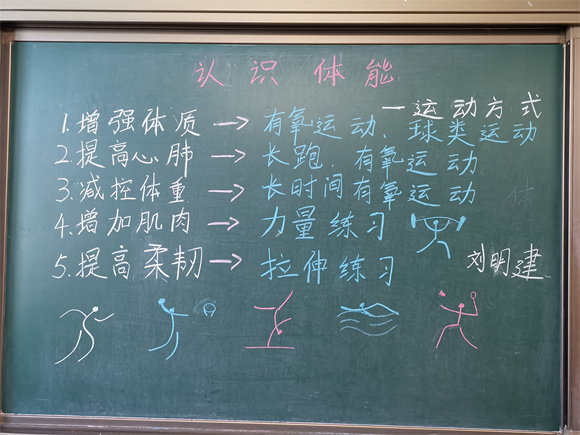 认识体能
一运动方式
1.增强体质→有氧运动、球类运动
2.提高心肺→长跑、有氧运动
3.减控体重→长时间有氧运动
4.增加肌肉→力量练习
5.提高柔韧→拉伸练习
刘明建